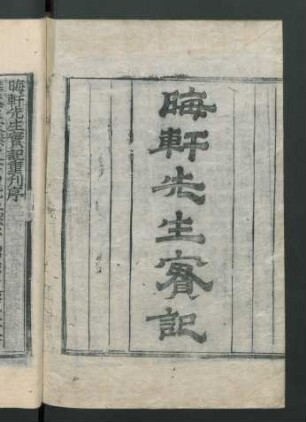 晦軒先生實記
晦軒先生實記重刊序